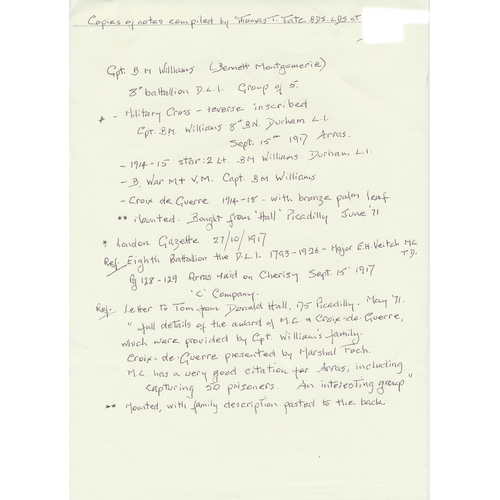 Copies of notes compiled by Thomas T. Tate BDS. LDS at
Cpt. B.M Williams (Bennett Montgomerie)
8" battalion D.L.I. Group of 5.
* - Military Cross - reverse inscribed
Cpt. BM. Williams 8th BN. Durham L.I.
Sept. 15th 1917 Arras.
- 1914-15 star: 2 Lt. BM Williams. Durham L.I.
- B. War M + V.M. Capt. BM Williams
- Croix de Guerre 1914-18 - with bronze palm leaf.
** Mounted. Bought from 'Hall' Picadilly June '71
* London Gazette 27/10/1917
Ref. Eighth Battalion the D.L.I. 1793-1926 - Major E.H. Veitch MC T.D.
Pg 128-129 Arras raid on Cherisy Sept. 15 1917
'C' Company.
Ref:- Letter to Tom from Donald Hall, 175 Picadilly. May '71.
"full details of the award of M.C. & Croix-de-Guerre,
which were provided by Cpt. William's family.
Croix-de-Guerre presented by Marshal Foch.
M.C. has a very good citation for Arras, including
capturing 50 prisoners. An interesting group"
** Mounted, with family description pasted to the back.